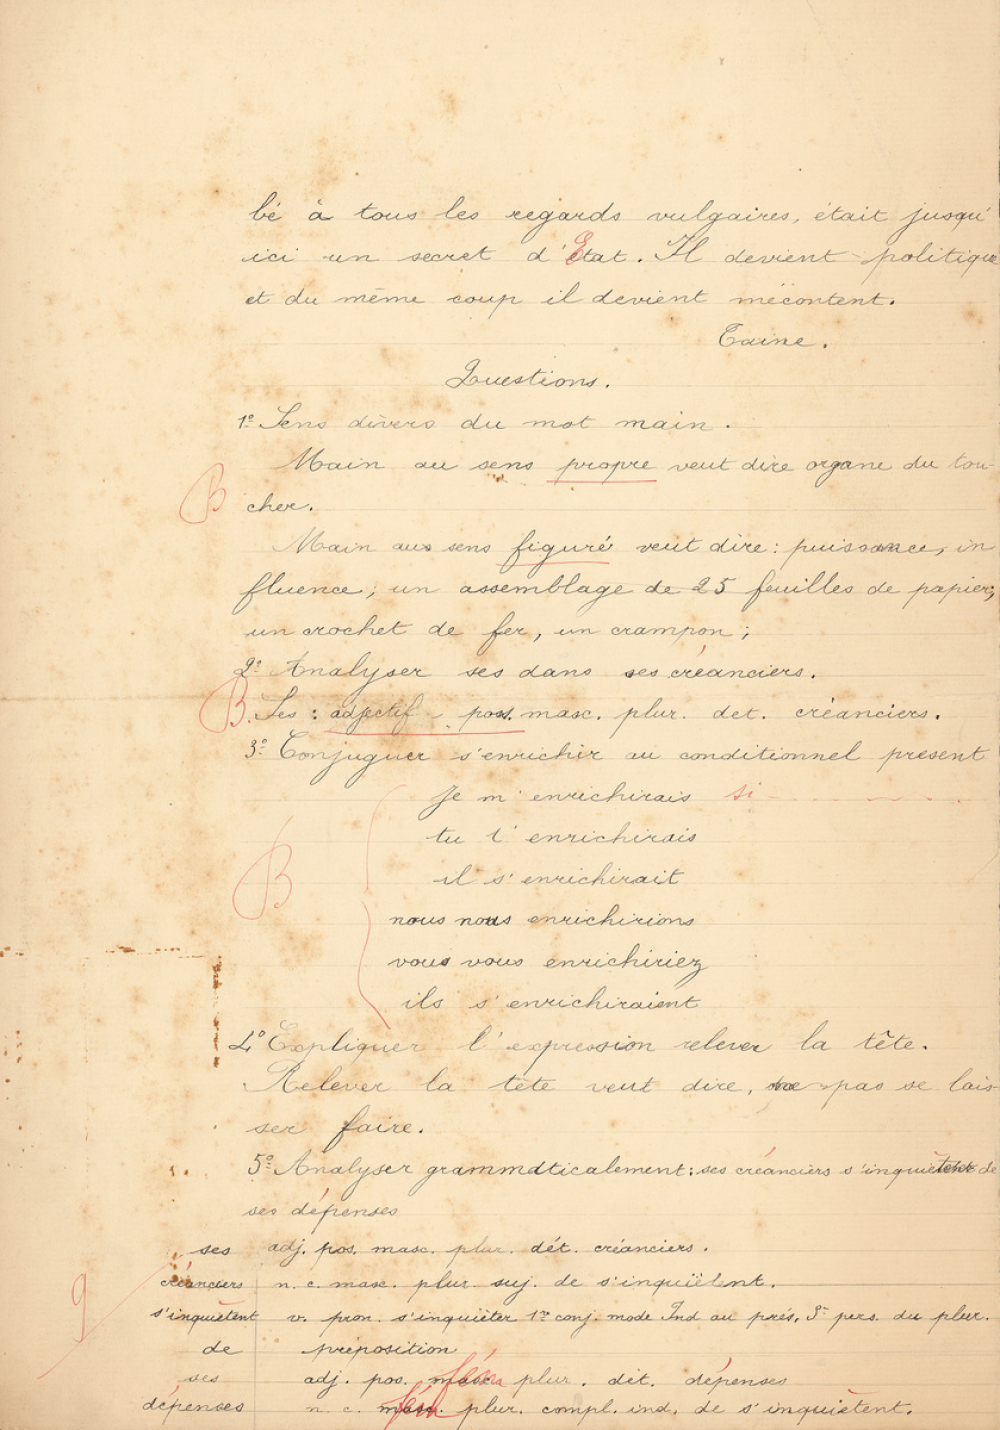 bé à tous les regards vulgaires, était jusqu'
ici un secret d'Etat. Il devient politique
et du même coup il devient mécontent.
Taine.
Questions.
1º Sens divers du mot main.
Main au sens propre veut dire organe du tou-
B cher.
Main aus sens figuré veut dire : puissance, in
fluence ; un assemblage de 25 feuilles de papier,
un crochet de fer, un crampon ;
2º Analyser ses dans ses créanciers.
B. Ses : adjectif poss. masc. plur. det. créanciers.
3º Conjuguer s'enrichir au conditionnel présent
Je m'enrichirais si
tu t'enrichirais
B il s'enrichirait
nous nous enrichirions
vous vous enrichiriez
ils s'enrichiraient
4º Expliquer l'expression relever la tête.
Relever la tête veut dire, ne pas se lais-
ser faire.
5º Analyser grammaticalement : ses créanciers s'inquiètent de
ses dépenses
ses adj. pos. masc. plur. dét. créanciers.
créanciers n. c. masc. plur. suj. de s'inquiètent.
9 s'inquiètent v. pron. s'inquiéter 1re conj. mode Ind au prés. 3e pers. du plur.
de préposition
ses adj. pos. masc. fém plur. dét. dépenses
dépenses n. c. masc. fém plur. compl. ind. de s'inquiètent.